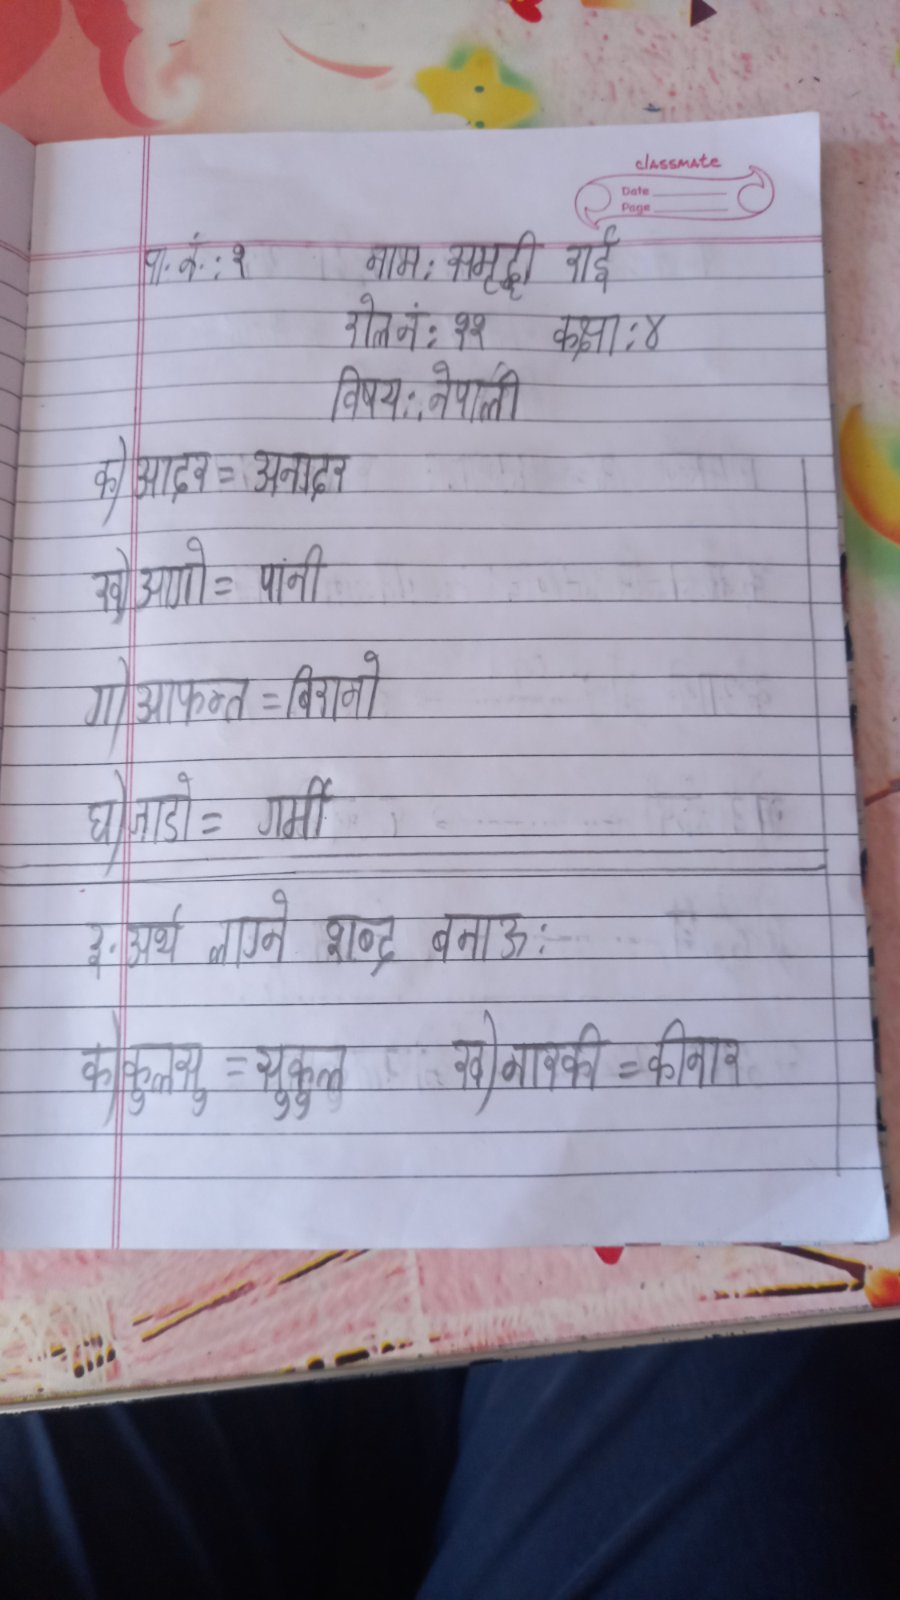 classmate
Date
Page
पा. नं.: १ नाम: समृद्धी राई
रोल नं: ११ कक्षा: ४
विषय: नेपाली
क) आदर = अनादर
ख) आगो = पांनी
ग) आफन्त = बिरानो
घ) जाडो = गर्मी
३. अर्थ लाग्ने शब्द बनाऊ:
क) कुलसु = सुकुल ख) नारकी = कीनार